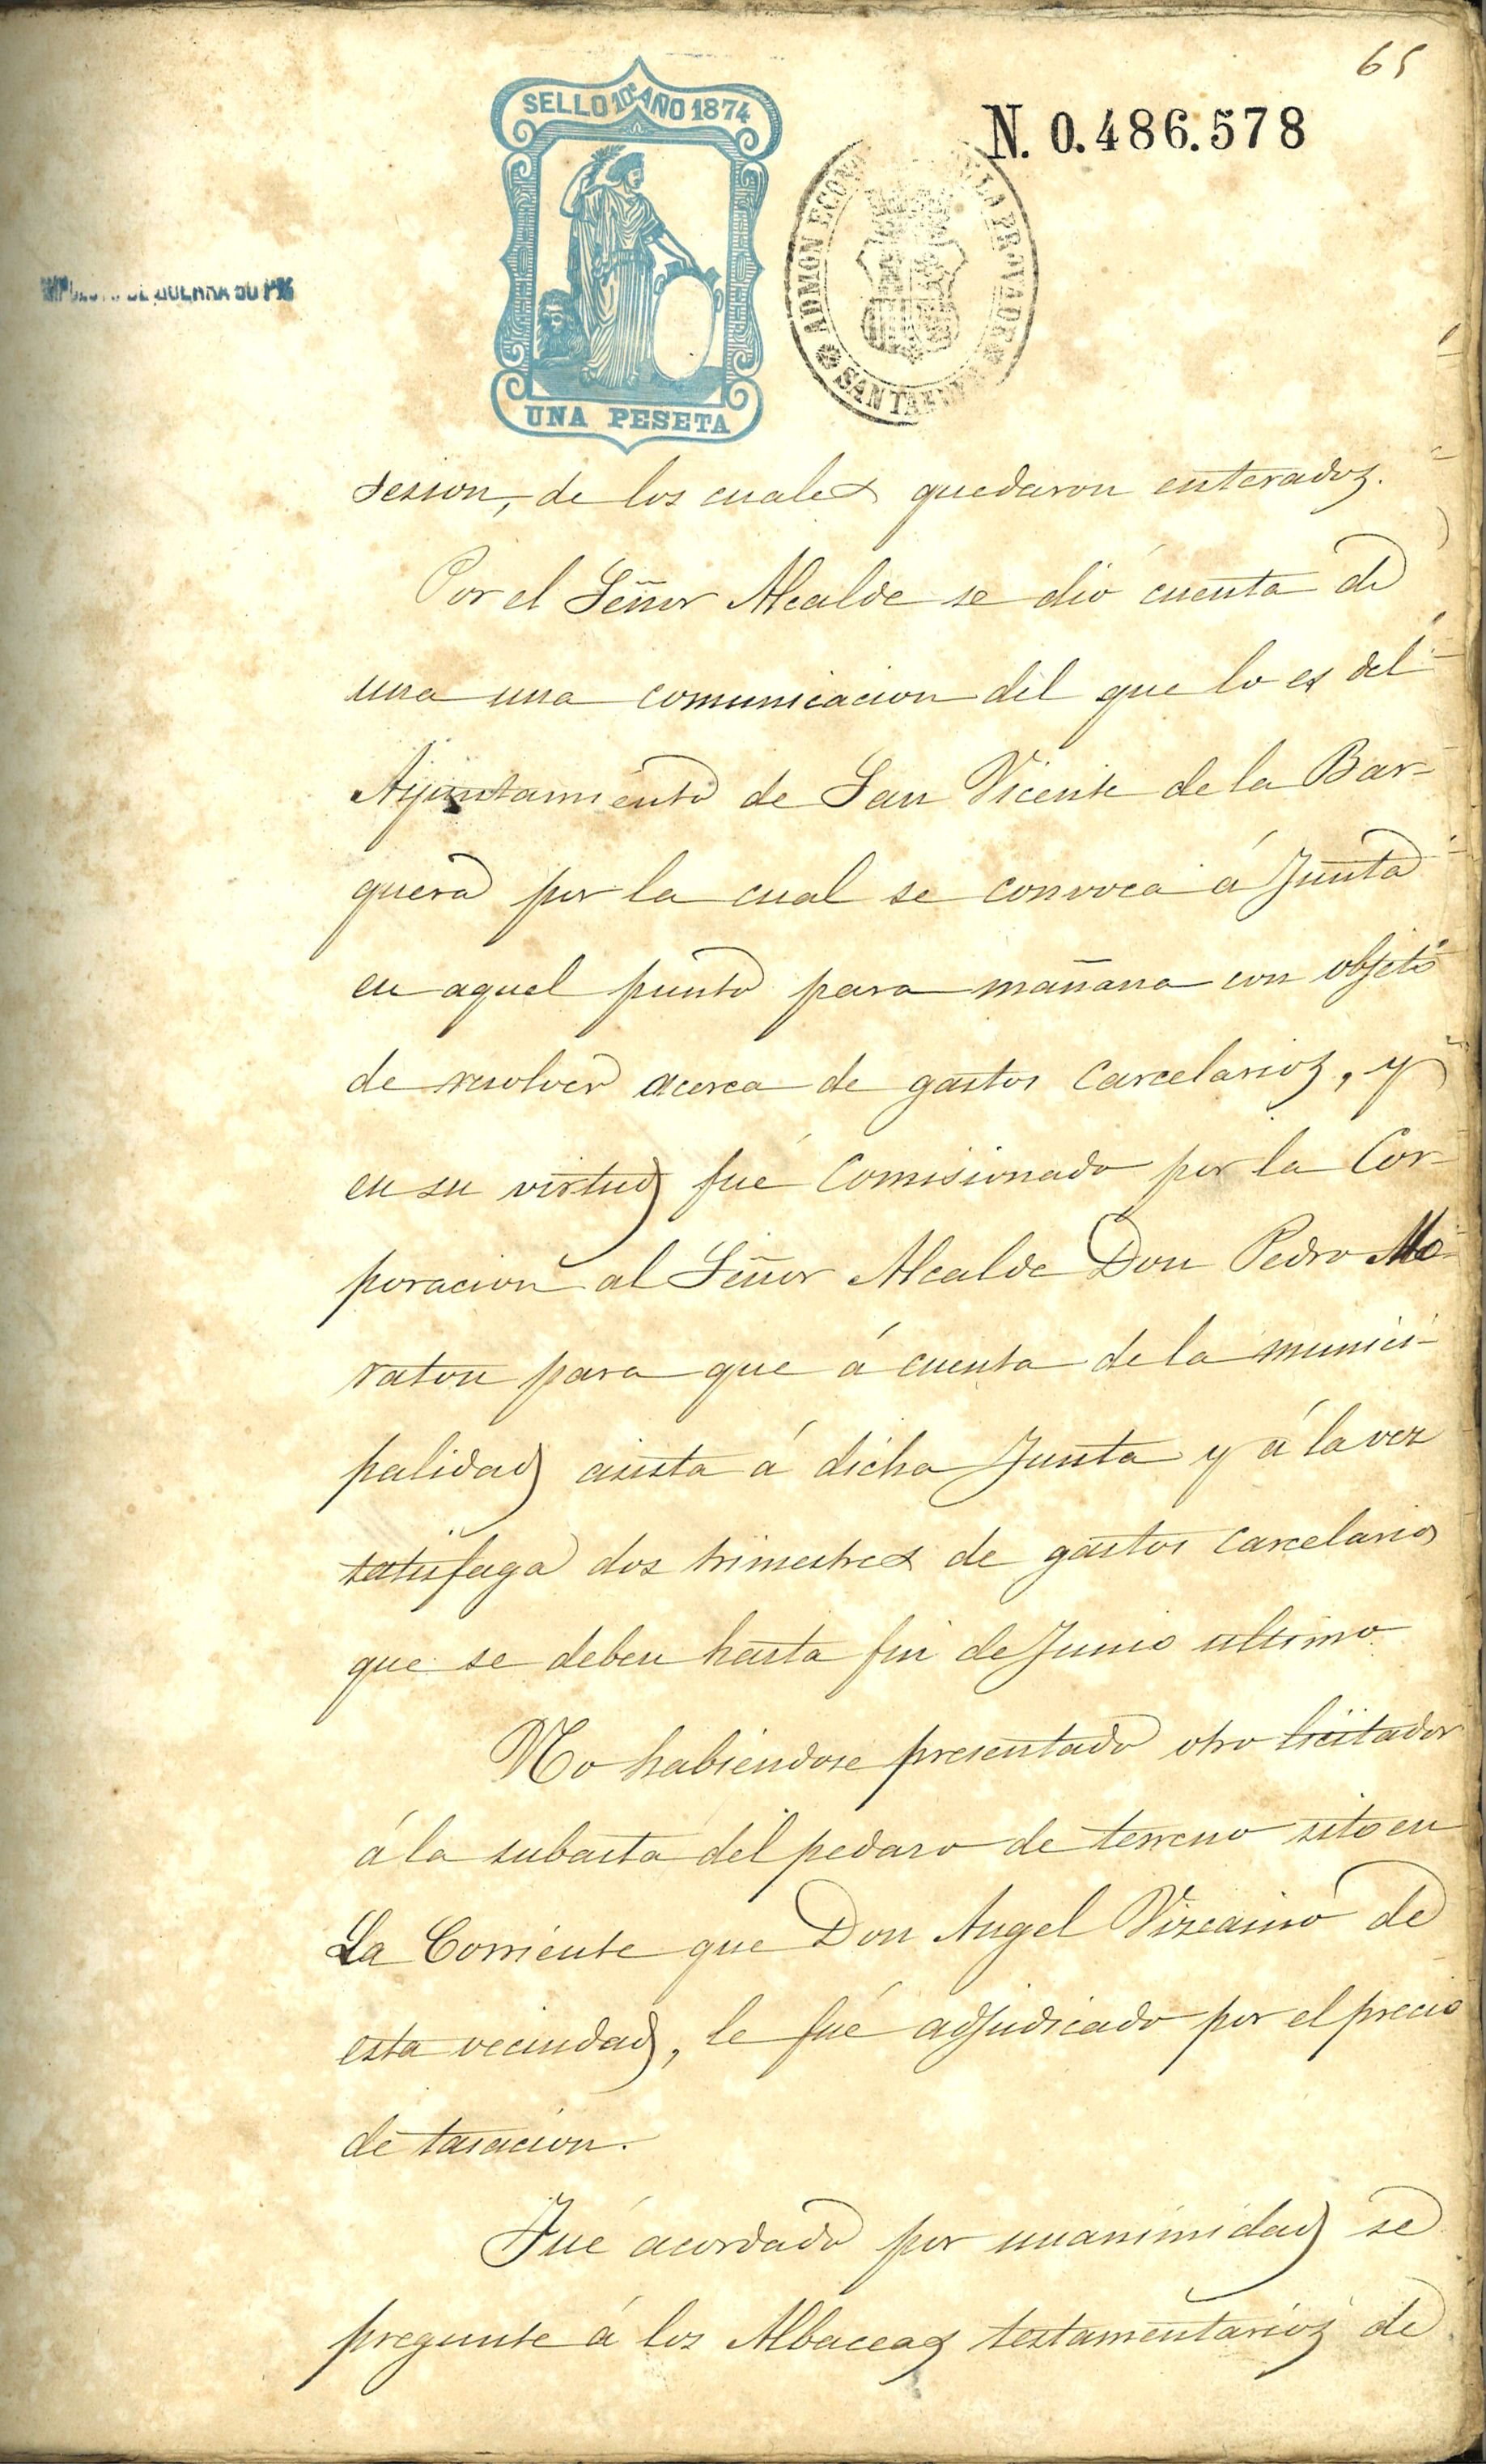 65
SELLO 10º AÑO 1874
N. 0.486.578
ADMON ECON LA PROV DE SANTANDER
DE GUERRA
UNA PESETA
sesion, de los cuales quedaron enterados.
Por el Señor Alcalde se dió cuenta de
una una comunicacion del que lo es del
Ayuntamiento de San Vicente de la Bar-
quera por la cual se convoca á Junta
en aquel punto para mañana con objeto
de resolver acerca de gastos carcelarios, y
en su virtud fué comisionado por la Cor-
poracion al Señor Alcalde Don Pedro Mo-
raton para que á cuenta de la munici-
palidad asista á dicha Junta y á la vez
satisfaga dos trimestres de gastos carcelarios
que se deben hasta fin de Junio ultimo.
No habiendose presentado otro licitador
á la subasta del pedazo de terreno sito en
La Corriente que Don Angel Vizcaino de
esta vecindad, le fué adjudicado por el precio
de tasacion.
Fué acordado por unanimidad se
pregunte á los Albaceas testamentarios de